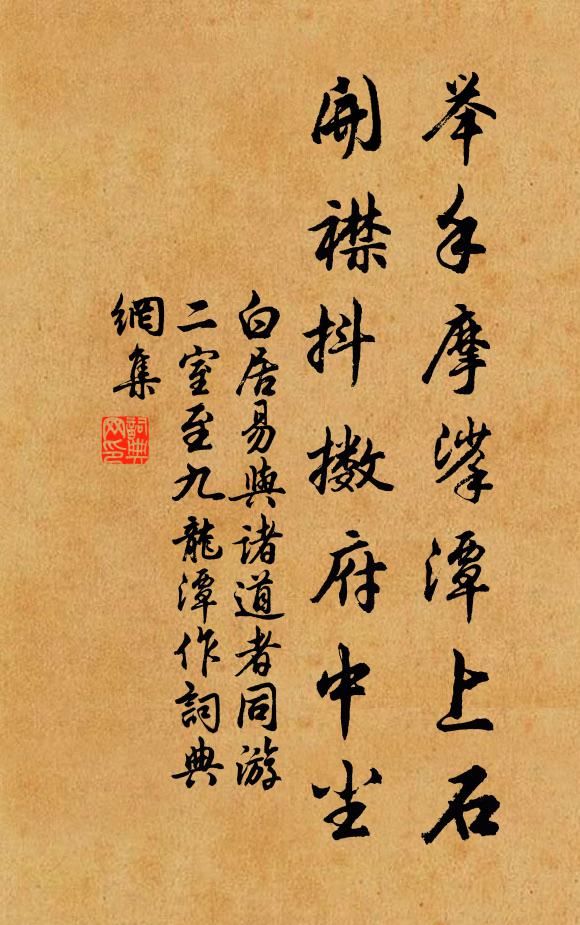 举手摩挲潭上石
開襟抖擻府中尘
白居易與諸道者同游
二室至九龍潭作詞典
網集
詞典網印